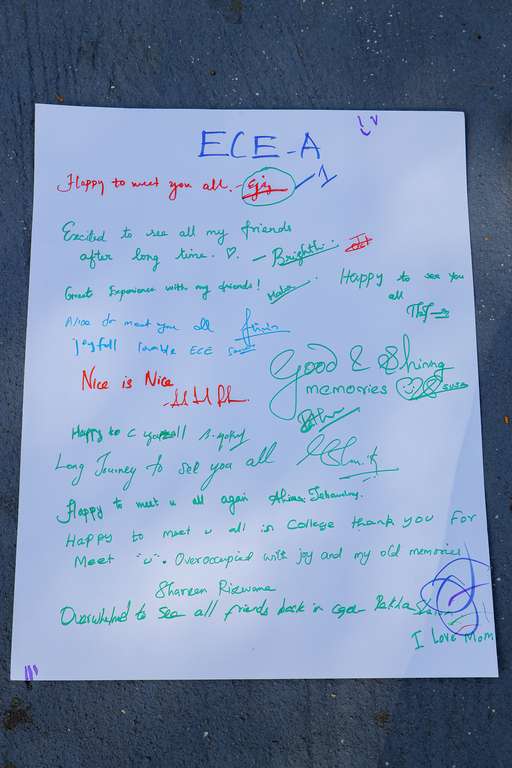 ECE-A
Happy to meet you all. - 1
Excited to see all my friends
after long time. ♡. - Brighthi.
Great Experience with my friends!
Happy to see you
all
Nice to meet you all
joyfull ECE
Good & Shining
memorries
Nice is Nice
Happy to c you all
Long Journey to see you all
Happy to meet u all again
Happy to meet u all in College thank you For
Meet "u". Overoccupied with joy and my old memories
Shareen Rizwana
Overwhelmed to see all friends back in
I Love Mom